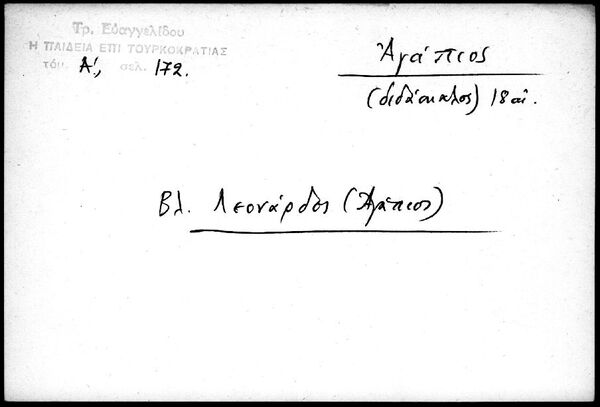 Τρ. Εὐαγγελίδου
Η ΠΑΙΔΕΙΑ ΕΠΙ ΤΟΥΡΚΟΚΡΑΤΙΑΣ
τόμ. Α', σελ. 172.
Ἀγάπιος
(διδάσκαλος) 18 αἰ.
Βλ. Λεονάρδος (Ἀγάπιος)